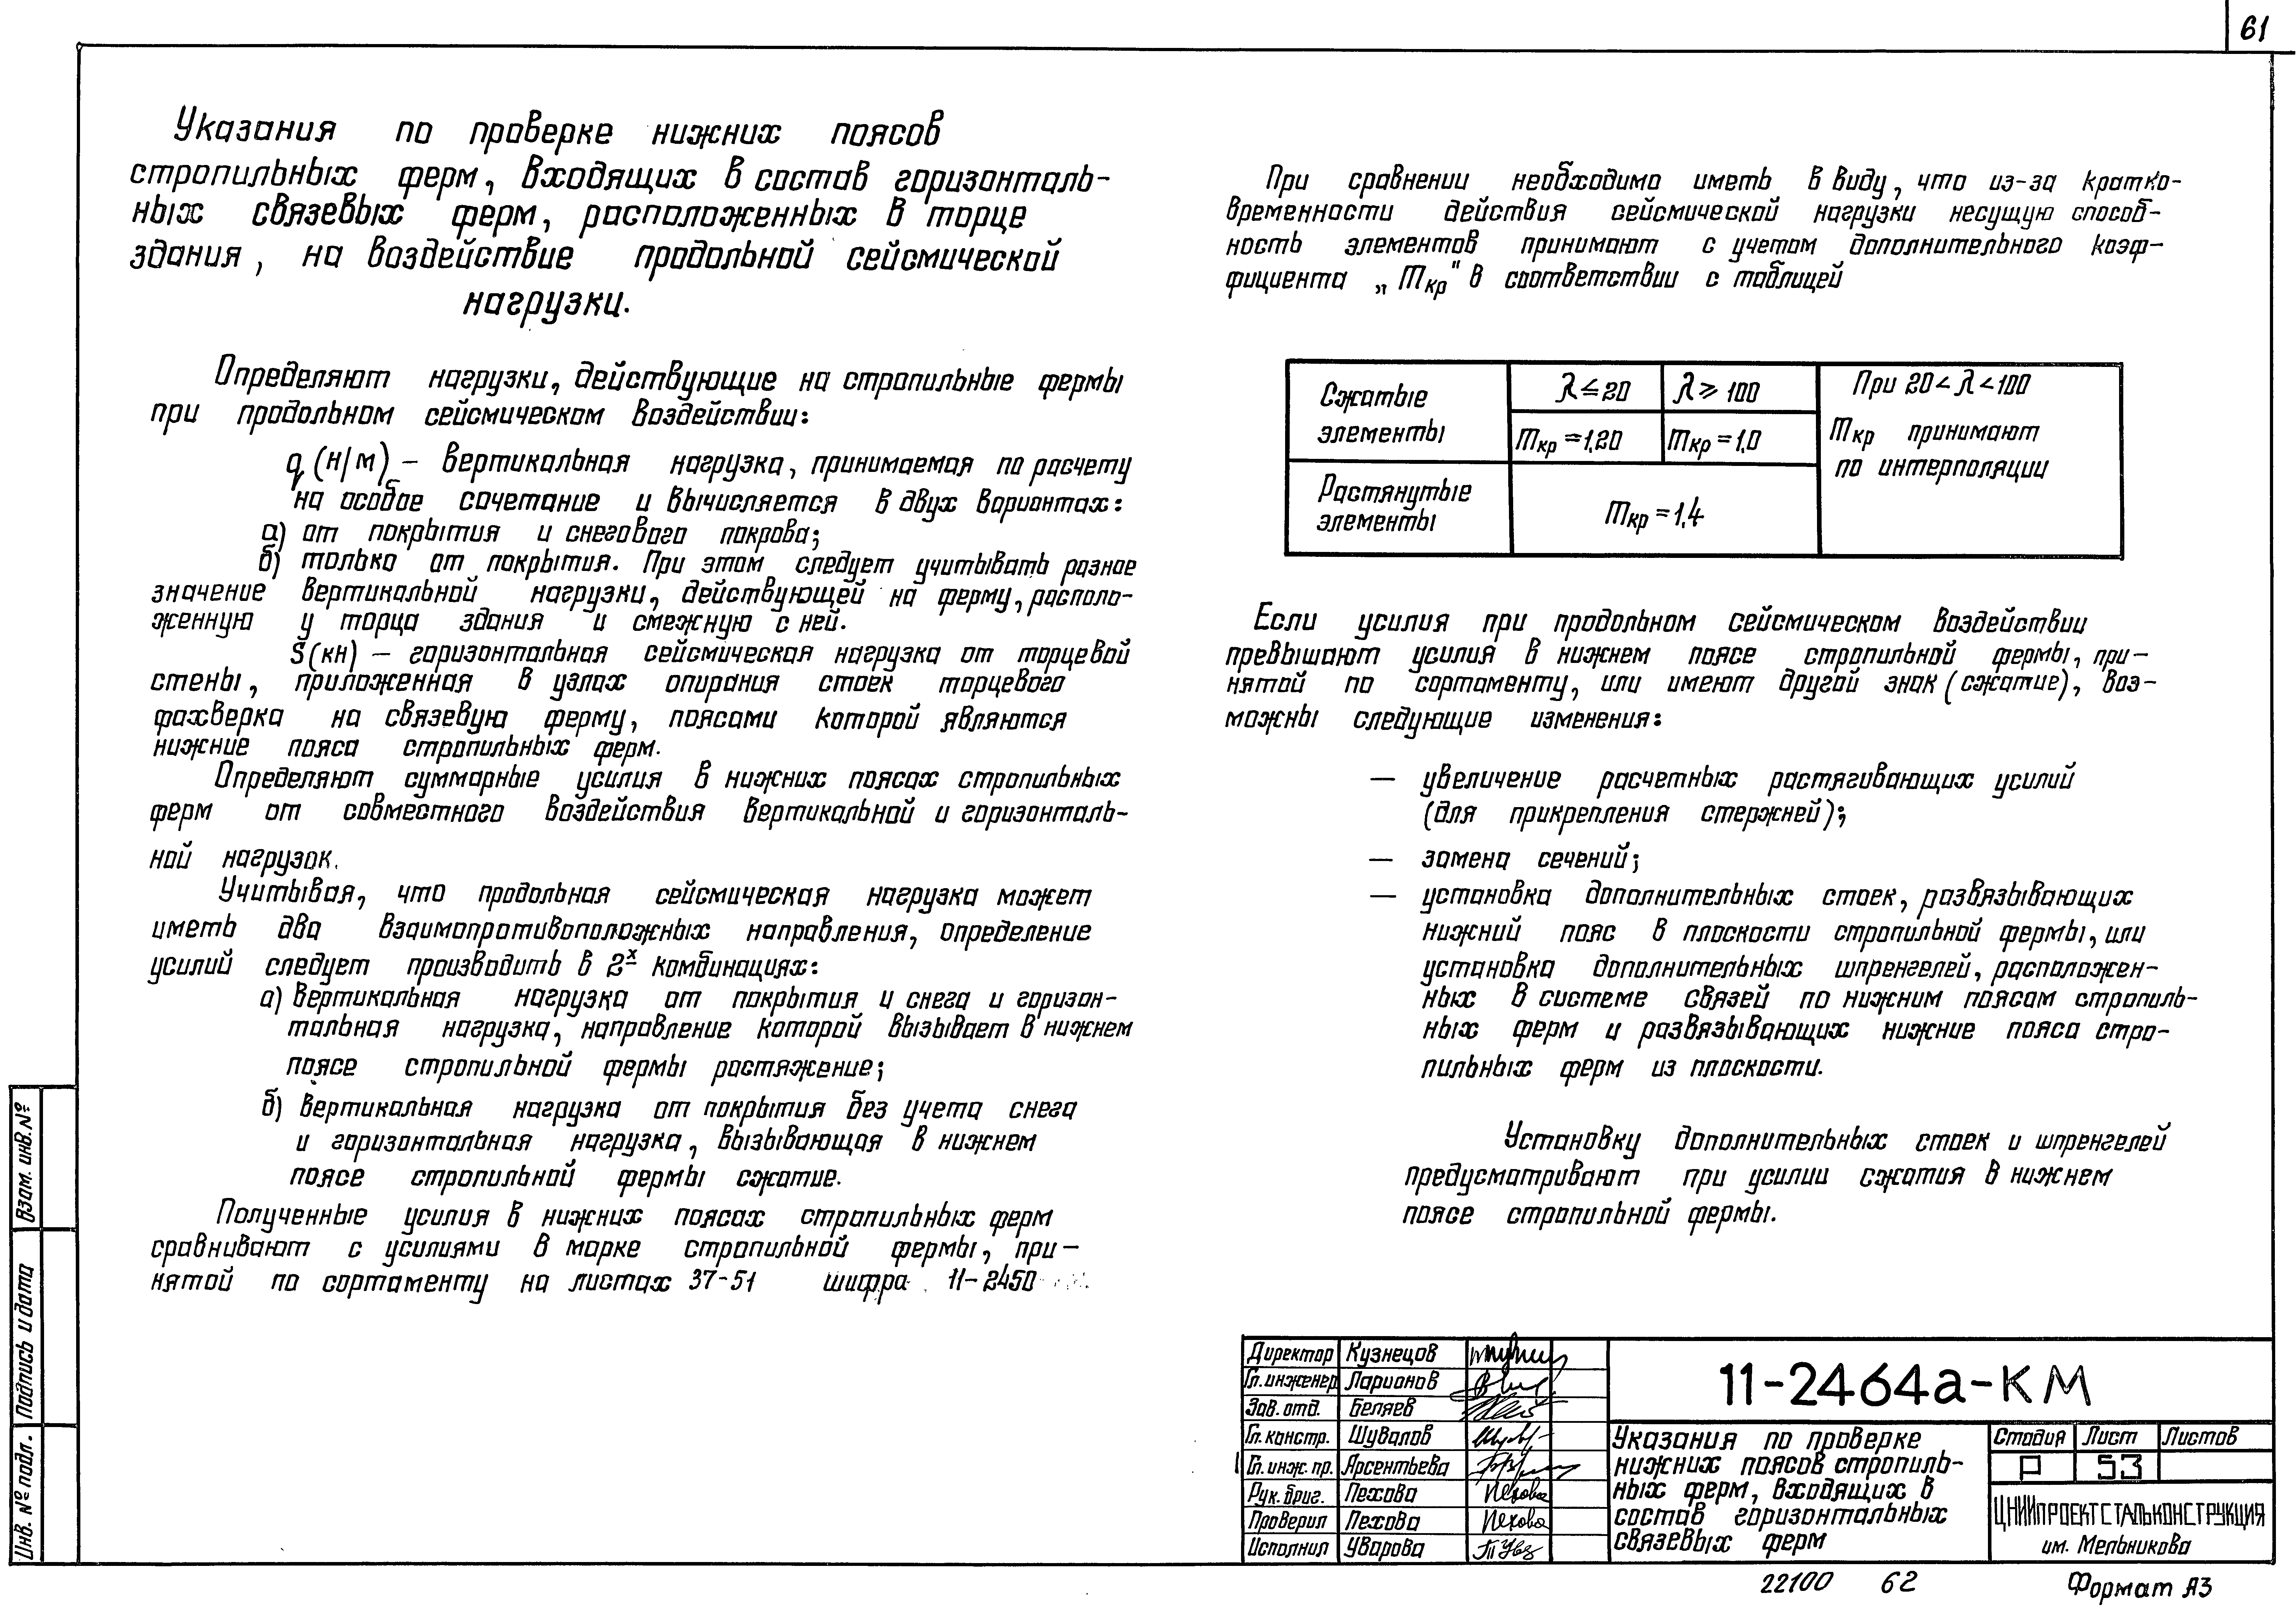 61
Указания по проверке нижних поясов
стропильных ферм, входящих в состав горизонталь-
ных связевых ферм, расположенных в торце
здания, на воздействие продольной сейсмической
нагрузки.
Определяют нагрузки, действующие на стропильные фермы
при продольном сейсмическом воздействии:
q (н/м) – вертикальная нагрузка, принимаемая по расчету
на особое сочетание и вычисляется в двух вариантах:
а) от покрытия и снегового покрова;
б) только от покрытия. При этом следует учитывать разное
значение вертикальной нагрузки, действующей на ферму, располо-
женную у торца здания и смежную с ней.
S (кн) – горизонтальная сейсмическая нагрузка от торцевой
стены, приложенная в узлах опирания стоек торцевого
фахверка на связевую ферму, поясами которой являются
нижние пояса стропильных ферм.
Определяют суммарные усилия в нижних поясах стропильных
ферм от совместного воздействия вертикальной и горизонталь-
ной нагрузок.
Учитывая, что продольная сейсмическая нагрузка может
иметь два взаимопротивоположных направления, определение
усилий следует производить в 2х комбинациях:
а) вертикальная нагрузка от покрытия и снега и горизон-
тальная нагрузка, направление которой вызывает в нижнем
поясе стропильной фермы растяжение;
б) вертикальная нагрузка от покрытия без учета снега
и горизонтальная нагрузка, вызывающая в нижнем
поясе стропильной фермы сжатие.
Полученные усилия в нижних поясах стропильных ферм
сравнивают с усилиями в марке стропильной фермы, при-
нятой по сортаменту на листах 37-51 шифра 11-2450
При сравнении необходимо иметь в виду, что из-за кратко-
временности действия сейсмической нагрузки несущую способ-
ность элементов принимают с учетом дополнительного коэф-
фициента „mкр" в соответствии с таблицей
Сжатые
элементы
λ ≤ 20
λ ≥ 100
mкр = 1,20
mкр = 1,0
При 20 < λ < 100
mкр принимают
по интерполяции
Растянутые
элементы
mкр = 1,4
Если усилия при продольном сейсмическом воздействии
превышают усилия в нижнем поясе стропильной фермы, при-
нятой по сортаменту, или имеют другой знак (сжатие), воз-
можны следующие изменения:
– увеличение расчетных растягивающих усилий
(для прикрепления стержней);
– замена сечений;
– установка дополнительных стоек, развязывающих
нижний пояс в плоскости стропильной фермы, или
установка дополнительных шпренгелей, расположен-
ных в системе связей по нижним поясам стропиль-
ных ферм и развязывающих нижние пояса стро-
пильных ферм из плоскости.
Установку дополнительных стоек и шпренгелей
предусматривают при усилии сжатия в нижнем
поясе стропильной фермы.
Взам. инв. №
Подпись и дата
Инв. № подл.
Директор Кузнецов
Гл. инженер Ларионов
Зав. отд. Беляев
Гл. констр. Шувалов
Гл. инж. пр. Арсентьева
Рук. бриг. Пехова Пехова
Проверил Пехова Пехова
Исполнил Уварова
11-2464а-КМ
Указания по проверке
нижних поясов стропиль-
ных ферм, входящих в
состав горизонтальных
связевых ферм
Стадия Лист Листов
Р 53
ЦНИИПРОЕКТСТАЛЬКОНСТРУКЦИЯ
им. Мельникова
22100 62
Формат А3